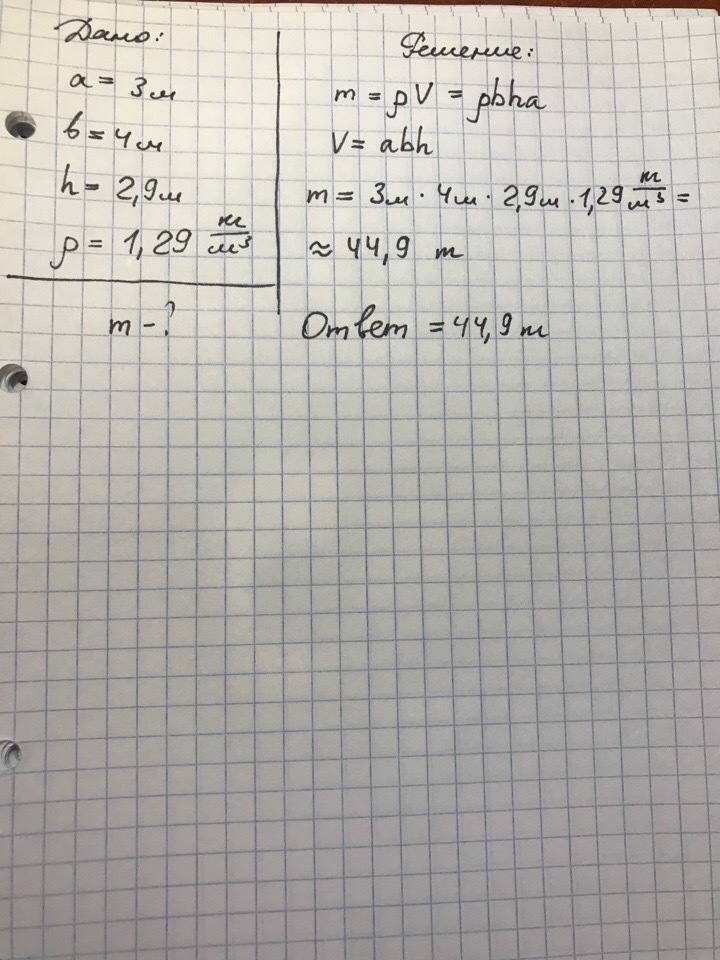 Дано:
a = 3м
b = 4м
h = 2,9м
ρ = 1,29 т/м³
m - ?
Решение:
m = ρV = ρbha
V = abh
m = 3м · 4м · 2,9м · 1,29 т/м³ =
≈ 44,9 т
Ответ = 44,9 т